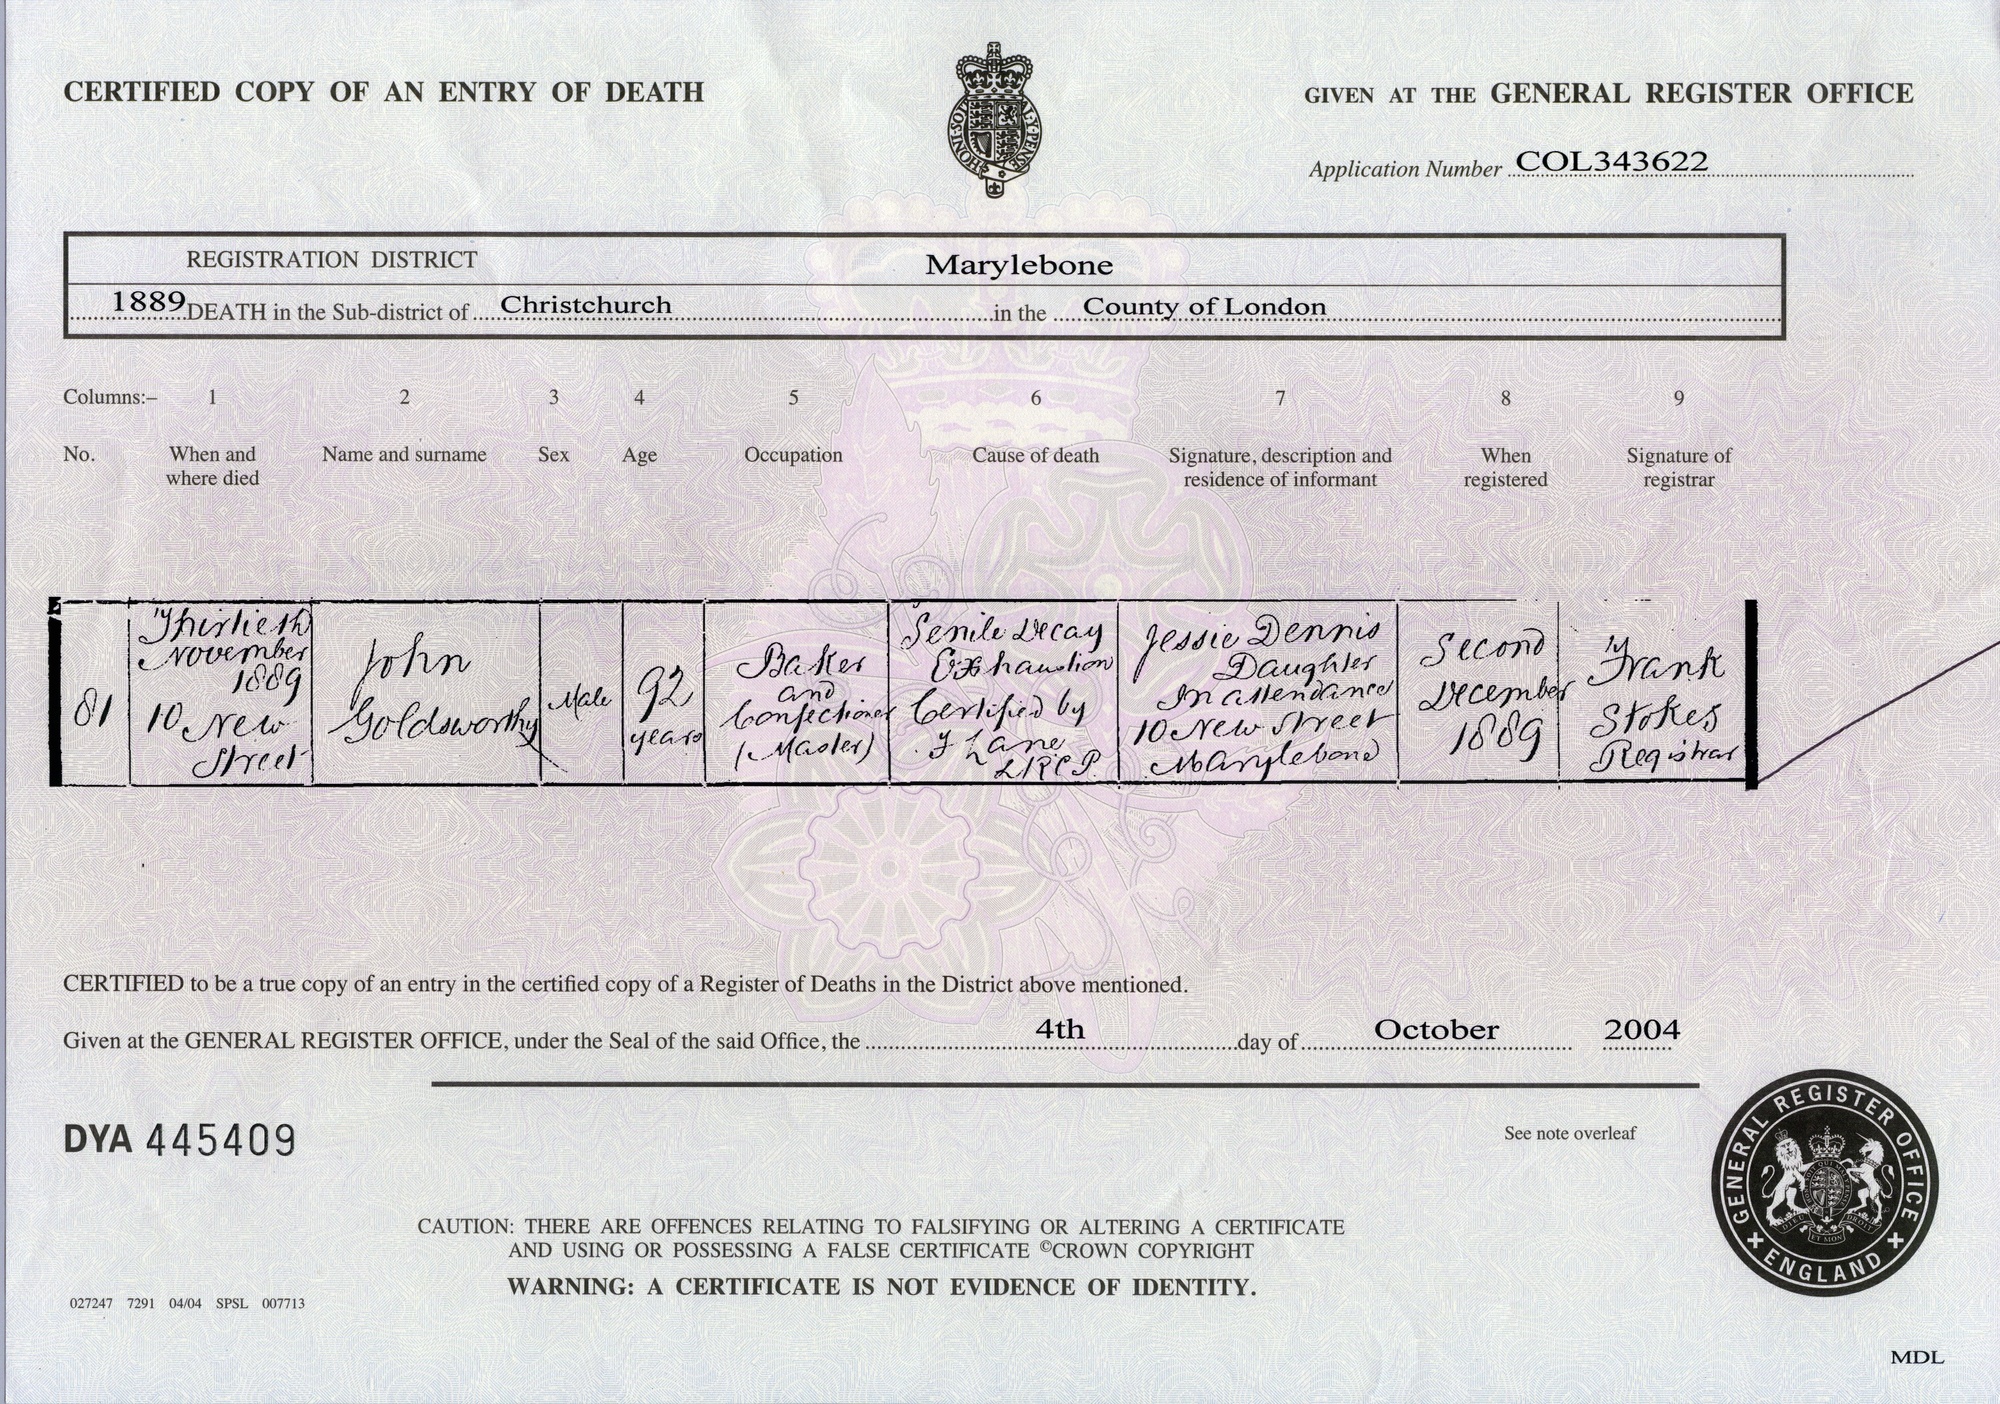 CERTIFIED COPY OF AN ENTRY OF DEATH
GIVEN AT THE GENERAL REGISTER OFFICE
Application Number COL343622
REGISTRATION DISTRICT Marylebone
1889 DEATH in the Sub-district of Christchurch in the County of London
Columns:– 1 2 3 4 5 6 7 8 9
No. When and where died Name and surname Sex Age Occupation Cause of death Signature, description and residence of informant When registered Signature of registrar
81
Thirtieth
November
1889
10 New
Street
John
Goldsworthy
Male
92
years
Baker
and
Confectioner
(Master)
Senile Decay
Exhaustion
Certified by
Lane
LRCP.
Jessie Dennis
Daughter
In attendance
10 New Street
Marylebone
Second
December
1889
Frank
Stokes
Registrar
CERTIFIED to be a true copy of an entry in the certified copy of a Register of Deaths in the District above mentioned.
Given at the GENERAL REGISTER OFFICE, under the Seal of the said Office, the 4th day of October 2004
DYA 445409
See note overleaf
GENERAL REGISTER OFFICE
ENGLAND
CAUTION: THERE ARE OFFENCES RELATING TO FALSIFYING OR ALTERING A CERTIFICATE
AND USING OR POSSESSING A FALSE CERTIFICATE ©CROWN COPYRIGHT
WARNING: A CERTIFICATE IS NOT EVIDENCE OF IDENTITY.
027247 7291 04/04 SPSL 007713
MDL